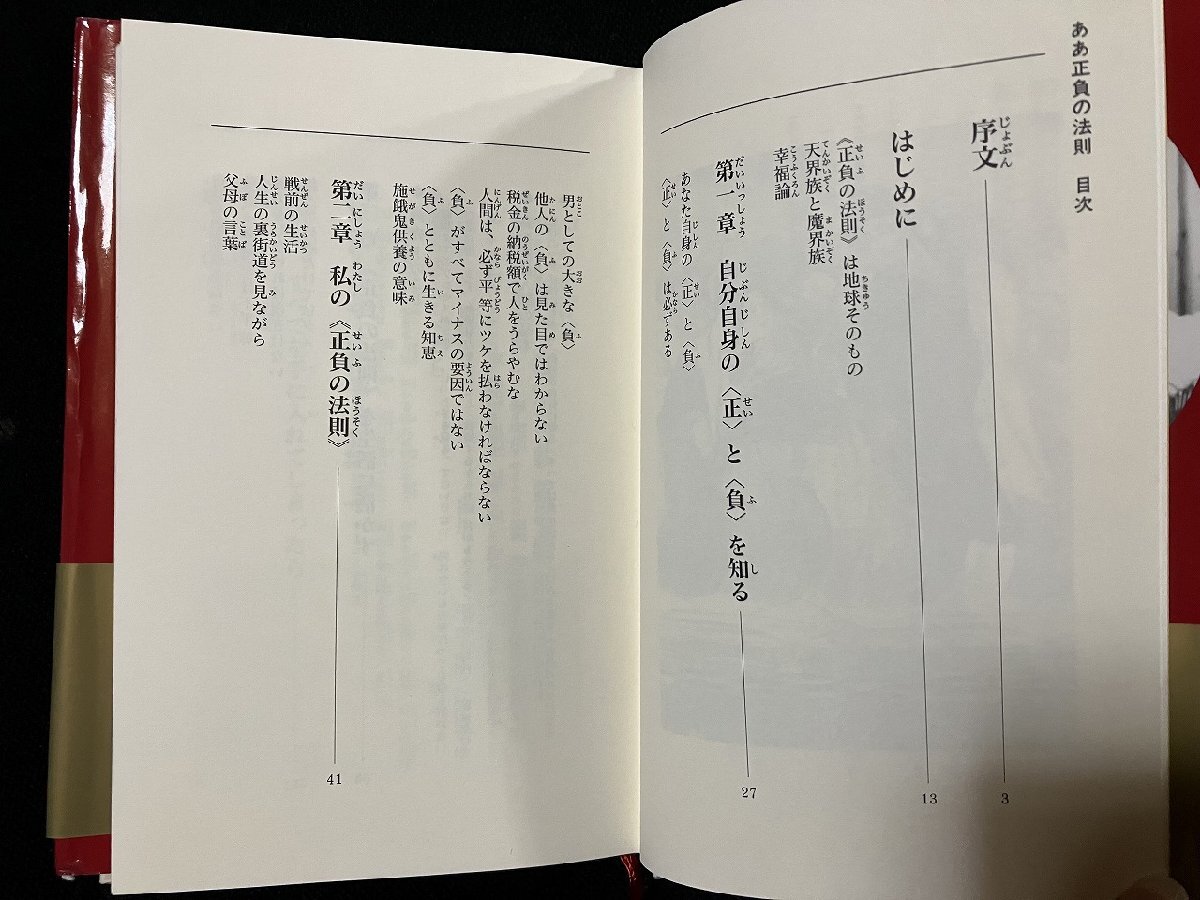 ああ正負の法則　目次
序文 3
はじめに 13
《正負の法則》は地球そのもの
天界族と魔界族
幸福論
第一章　自分自身の〈正〉と〈負〉を知る 27
あなた自身の〈正〉と〈負〉
〈正〉と〈負〉は必ずある
男としての大きな〈負〉
他人の〈負〉は見た目ではわからない
税金の納税額で人をうらやむな
人間は、必ず平等にツケを払わなければならない
〈負〉がすべてマイナスの要因ではない
〈負〉とともに生きる知恵
施餓鬼供養の意味
第二章　私の《正負の法則》 41
戦前の生活
人生の裏街道を見ながら
父母の言葉